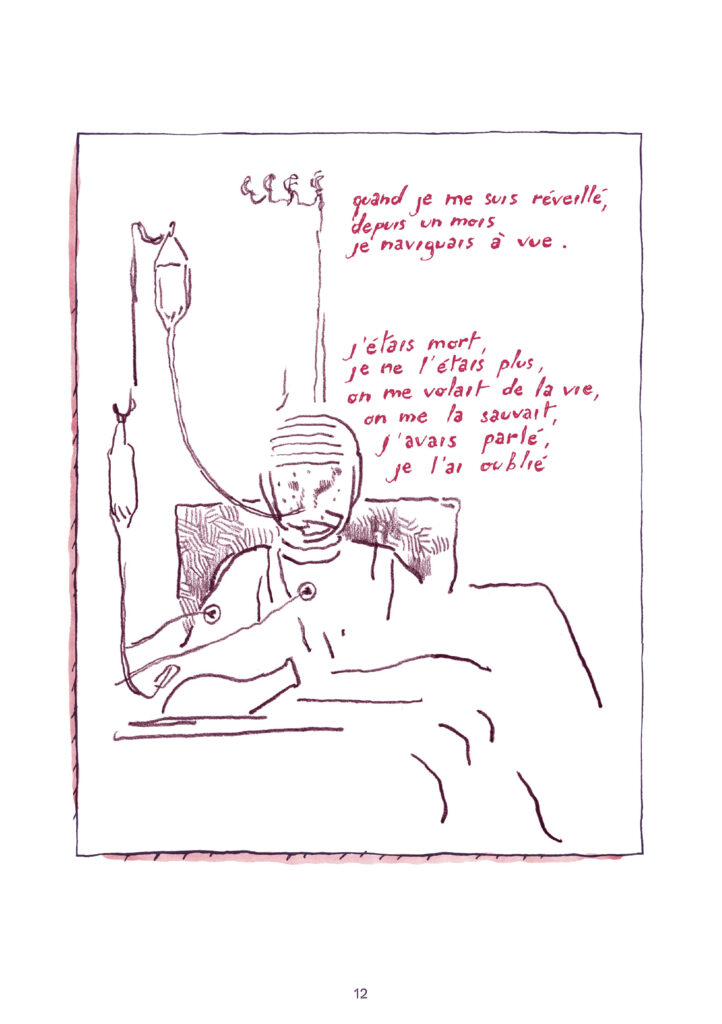 quand je me suis réveillé,
depuis un mois
je naviguais à vue.
j'étais mort,
je ne l'étais plus,
on me volait de la vie,
on me la sauvait,
j'avais parlé,
je l'ai oublié
12